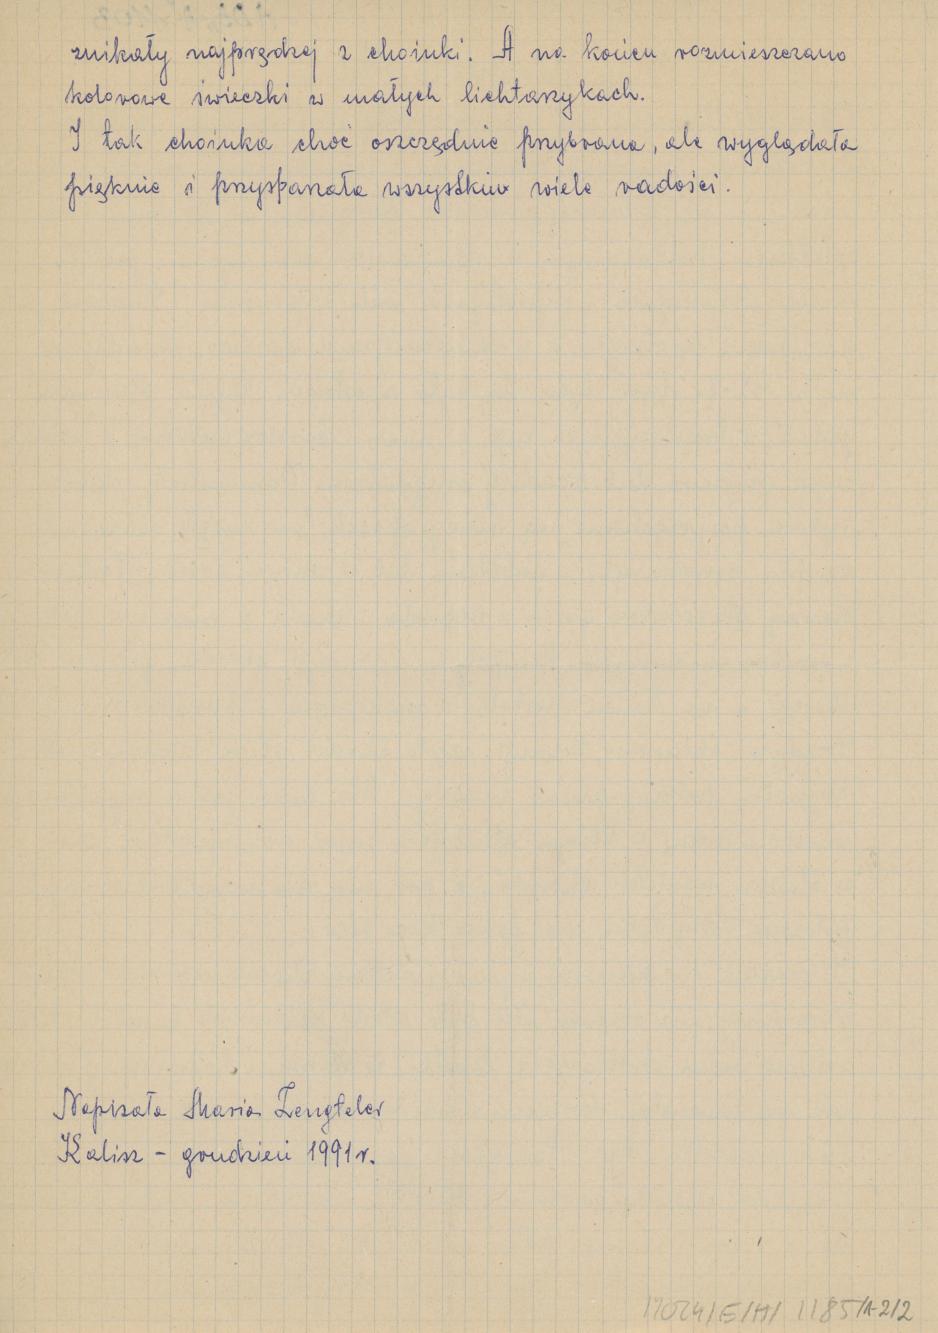 znikały najprędzej z choinki. A na końcu rozmieszczano
kolorowe świeczki w małych lichtarzykach.
I tak choinka choć oszczędnie przybrana, ale wyglądała
pięknie i przysparzała wszystkim wiele radości.
Napisała Maria Zengteler
Kalisz - grudzień 1991 r.
17024/E/H/ 1185/A-2/2